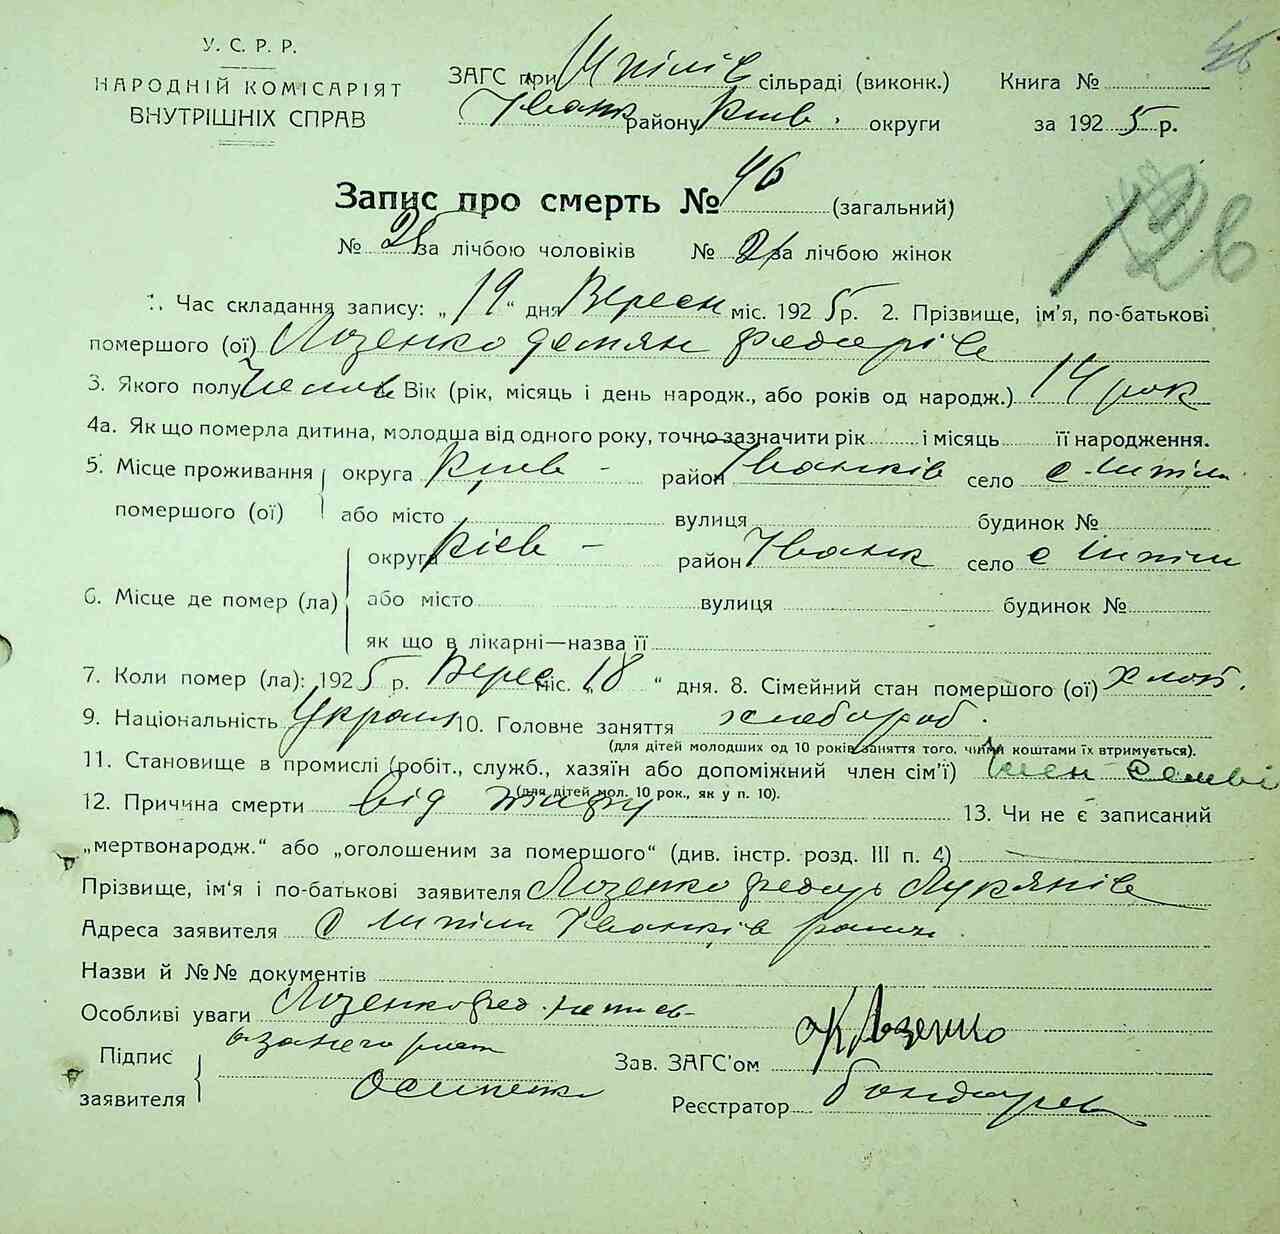 У. С. Р. Р.
НАРОДНІЙ КОМІСАРІЯТ
ВНУТРІШНІХ СПРАВ
ЗАГС при Шпілів сільраді (виконк.)
Іванк району Київ. округи
Книга №
за 1925 р.
46
Запис про смерть № 46 (загальний)
126
№ 25 за лічбою чоловіків № 21 за лічбою жінок
1. Час складання запису: „19“ дня Вересн міс. 1925 р. 2. Прізвище, ім'я, по-батькові
помершого (ої) Лозенко Демян Федорів
3. Якого полу Чолов Вік (рік, місяць і день народж., або років од народж.) 14 рок
4а. Як що померла дитина, молодша від одного року, точно зазначити рік і місяць її народження.
5. Місце проживання помершого (ої) округа Київ - район Іванків село с Шпіли
або місто вулиця будинок №
6. Місце де помер (ла) округа Київ - район Іванк село с Шпіли
або місто вулиця будинок №
як що в лікарні—назва її
7. Коли помер (ла): 1925 р. Верес міс. „18“ дня. 8. Сімейний стан помершого (ої) холост.
9. Національність Украин 10. Головне заняття хлебороб.
(для дітей молодших од 10 років заняття того, чиїми коштами їх втримується).
11. Становище в промислі (робіт., служб., хазяїн або допоміжний член сім'ї) Член семьі
(для дітей мол. 10 рок., як у п. 10).
12. Причина смерти від тифу 13. Чи не є записаний
„мертвонародж.“ або „оголошеним за помершого“ (див. інстр. розд. III п. 4)
Прізвище, ім'я і по-батькові заявителя Лозенко Федір Лукянів
Адреса заявителя С Шпіли Іванків район.
Назви й №№ документів
Особливі уваги Лозенко Фед.
Підпис заявителя
Осипенко
Зав. ЗАГС'ом Лазенко
Реєстратор Бондарев